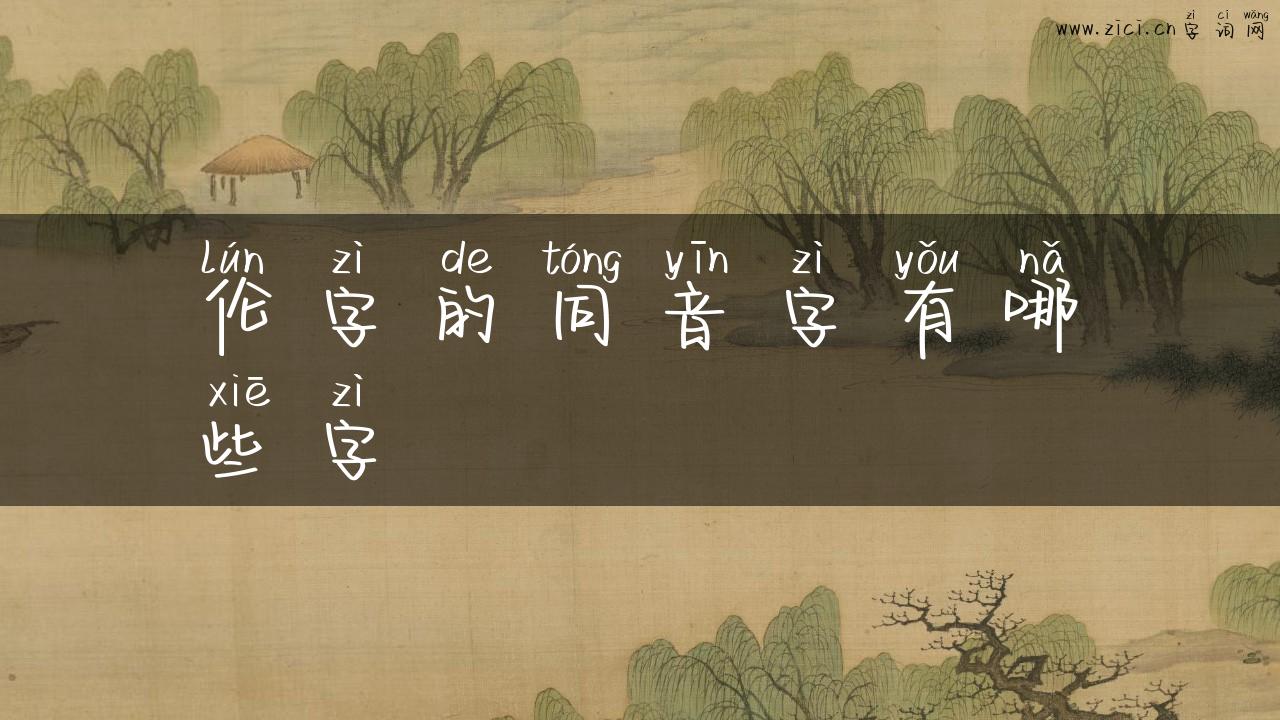 zì cí wǎng
www.zici.cn 字词网
lún zì de tóng yīn zì yǒu nǎ
伦字的同音字有哪
xiē zì
些字